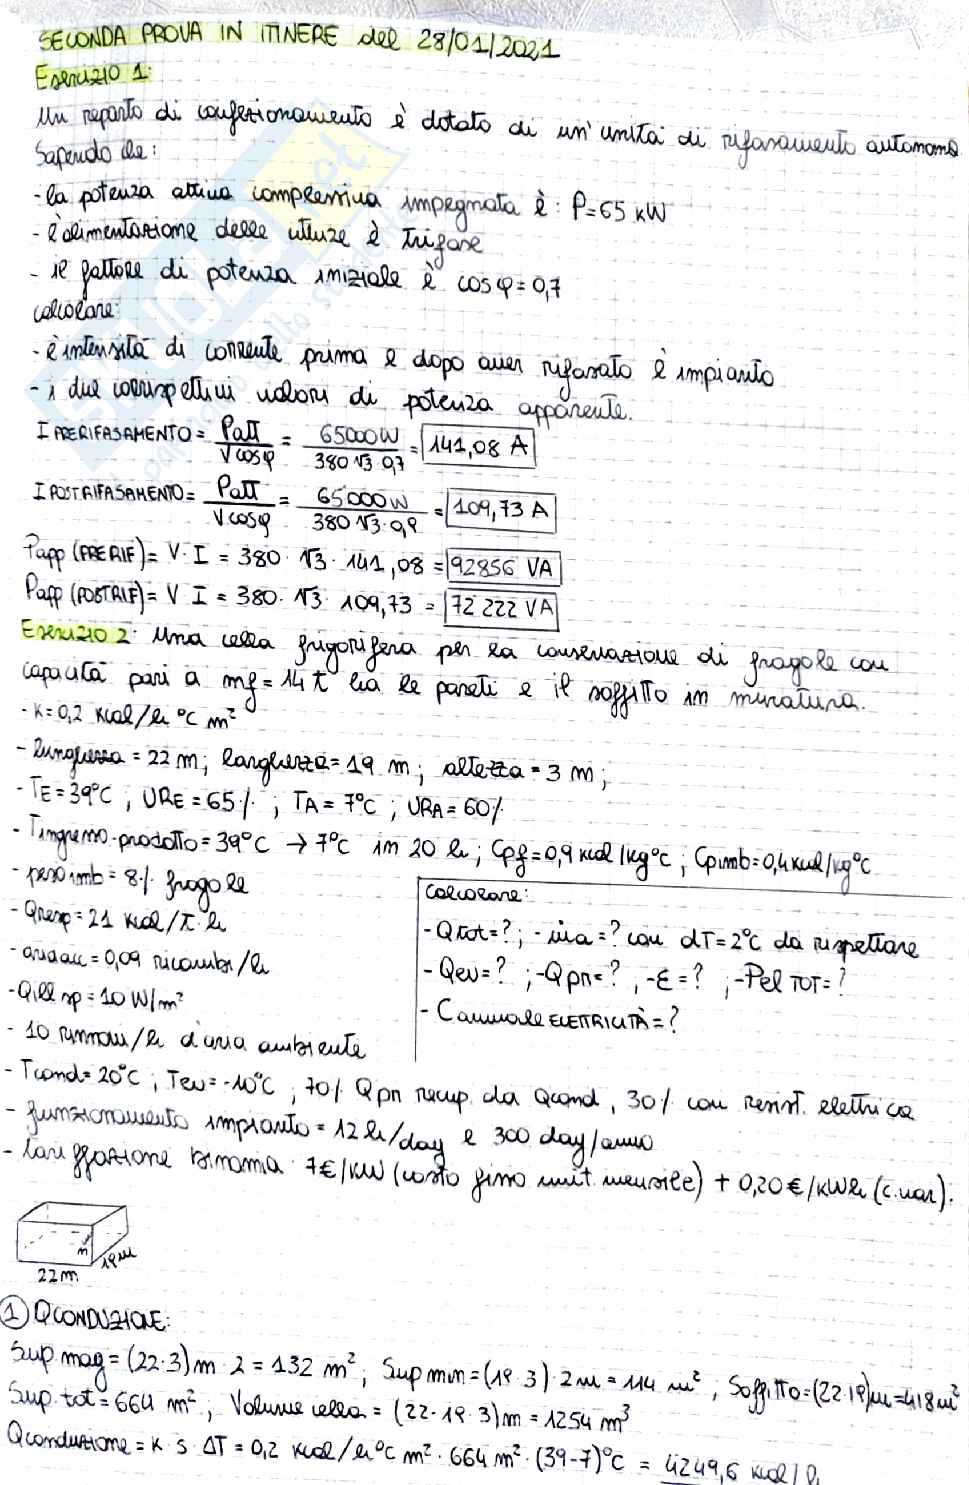 SECONDA PROVA IN ITINERE del 28/01/2021
Esercizio 1:
Un reparto di confezionamento è dotato di un'unità di rifasamento autonomo
Sapendo che:
- la potenza attiva complessiva impegnata è: P=65 kW
- l'alimentazione delle utenze è trifase
- il fattore di potenza iniziale è cosφ=0,7
calcolare:
- l'intensità di corrente prima e dopo aver rifasato l'impianto
- i due corrispettivi valori di potenza apparente.
I PRERIFASAMENTO = Patt / V cosφ = 65000W / 380 √3 0,7 = 141,08 A
I POSTRIFASAMENTO = Patt / V cosφ = 65000W / 380 √3 · 0,9 = 109,73 A
Papp (PRERIF) = V · I = 380 · √3 · 141,08 = 92856 VA
Papp (POSTRIF) = V I = 380 · √3 · 109,73 = 72 222 VA
Esercizio 2: Una cella frigorifera per la conservazione di fragole con
capacità pari a mf = 14 t ha le pareti e il soffitto in muratura.
- K=0,2 kcal/h °C m²
- lunghezza = 22 m; larghezza = 19 m; altezza = 3 m;
- TE=39°C ; URE=65% ; TA=7°C ; URA=60%
- Tingresso prodotto = 39°C → 7°C in 20 h; Cpf=0,9 kcal/kg°C ; Cpimb=0,4 kcal/kg°C
- peso imb = 8% fragole
- Qresp = 21 kcal/t·h
- = 0,09 ricambi/h
- Qill sp = 10 W/m²
- 10 rinnovi/h d'aria ambiente
calcolare:
- Qtot=? ; - ma=? con dT=2°C da rispettare
- Qev=? ; - Qpr=? , - ε=? ; - Pel TOT=?
- C annuale ELETTRICITÀ=?
- Tcond=20°C ; Tev=-10°C ; 70% Qpr recup. da Qcond, 30% con resist. elettrica
- funzionamento impianto = 12 h/day e 300 day/anno
- tariffazione binomia 7€/kW (costo fisso unit. mensile) + 0,20€/kWh (c.var).
m
19m
22m
1 QCONDUZIONE:
Sup mag = (22·3)m · 2 = 132 m² ; Sup min = (19·3)·2m = 114 m² ; Soffitto=(22·19)m=418m²
Sup. tot = 664 m² ; Volume cella = (22·19·3)m = 1254 m³
Qconduzione = K·S·ΔT = 0,2 kcal/h°C m² · 664 m² · (39-7)°C = 4249,6 kcal/h